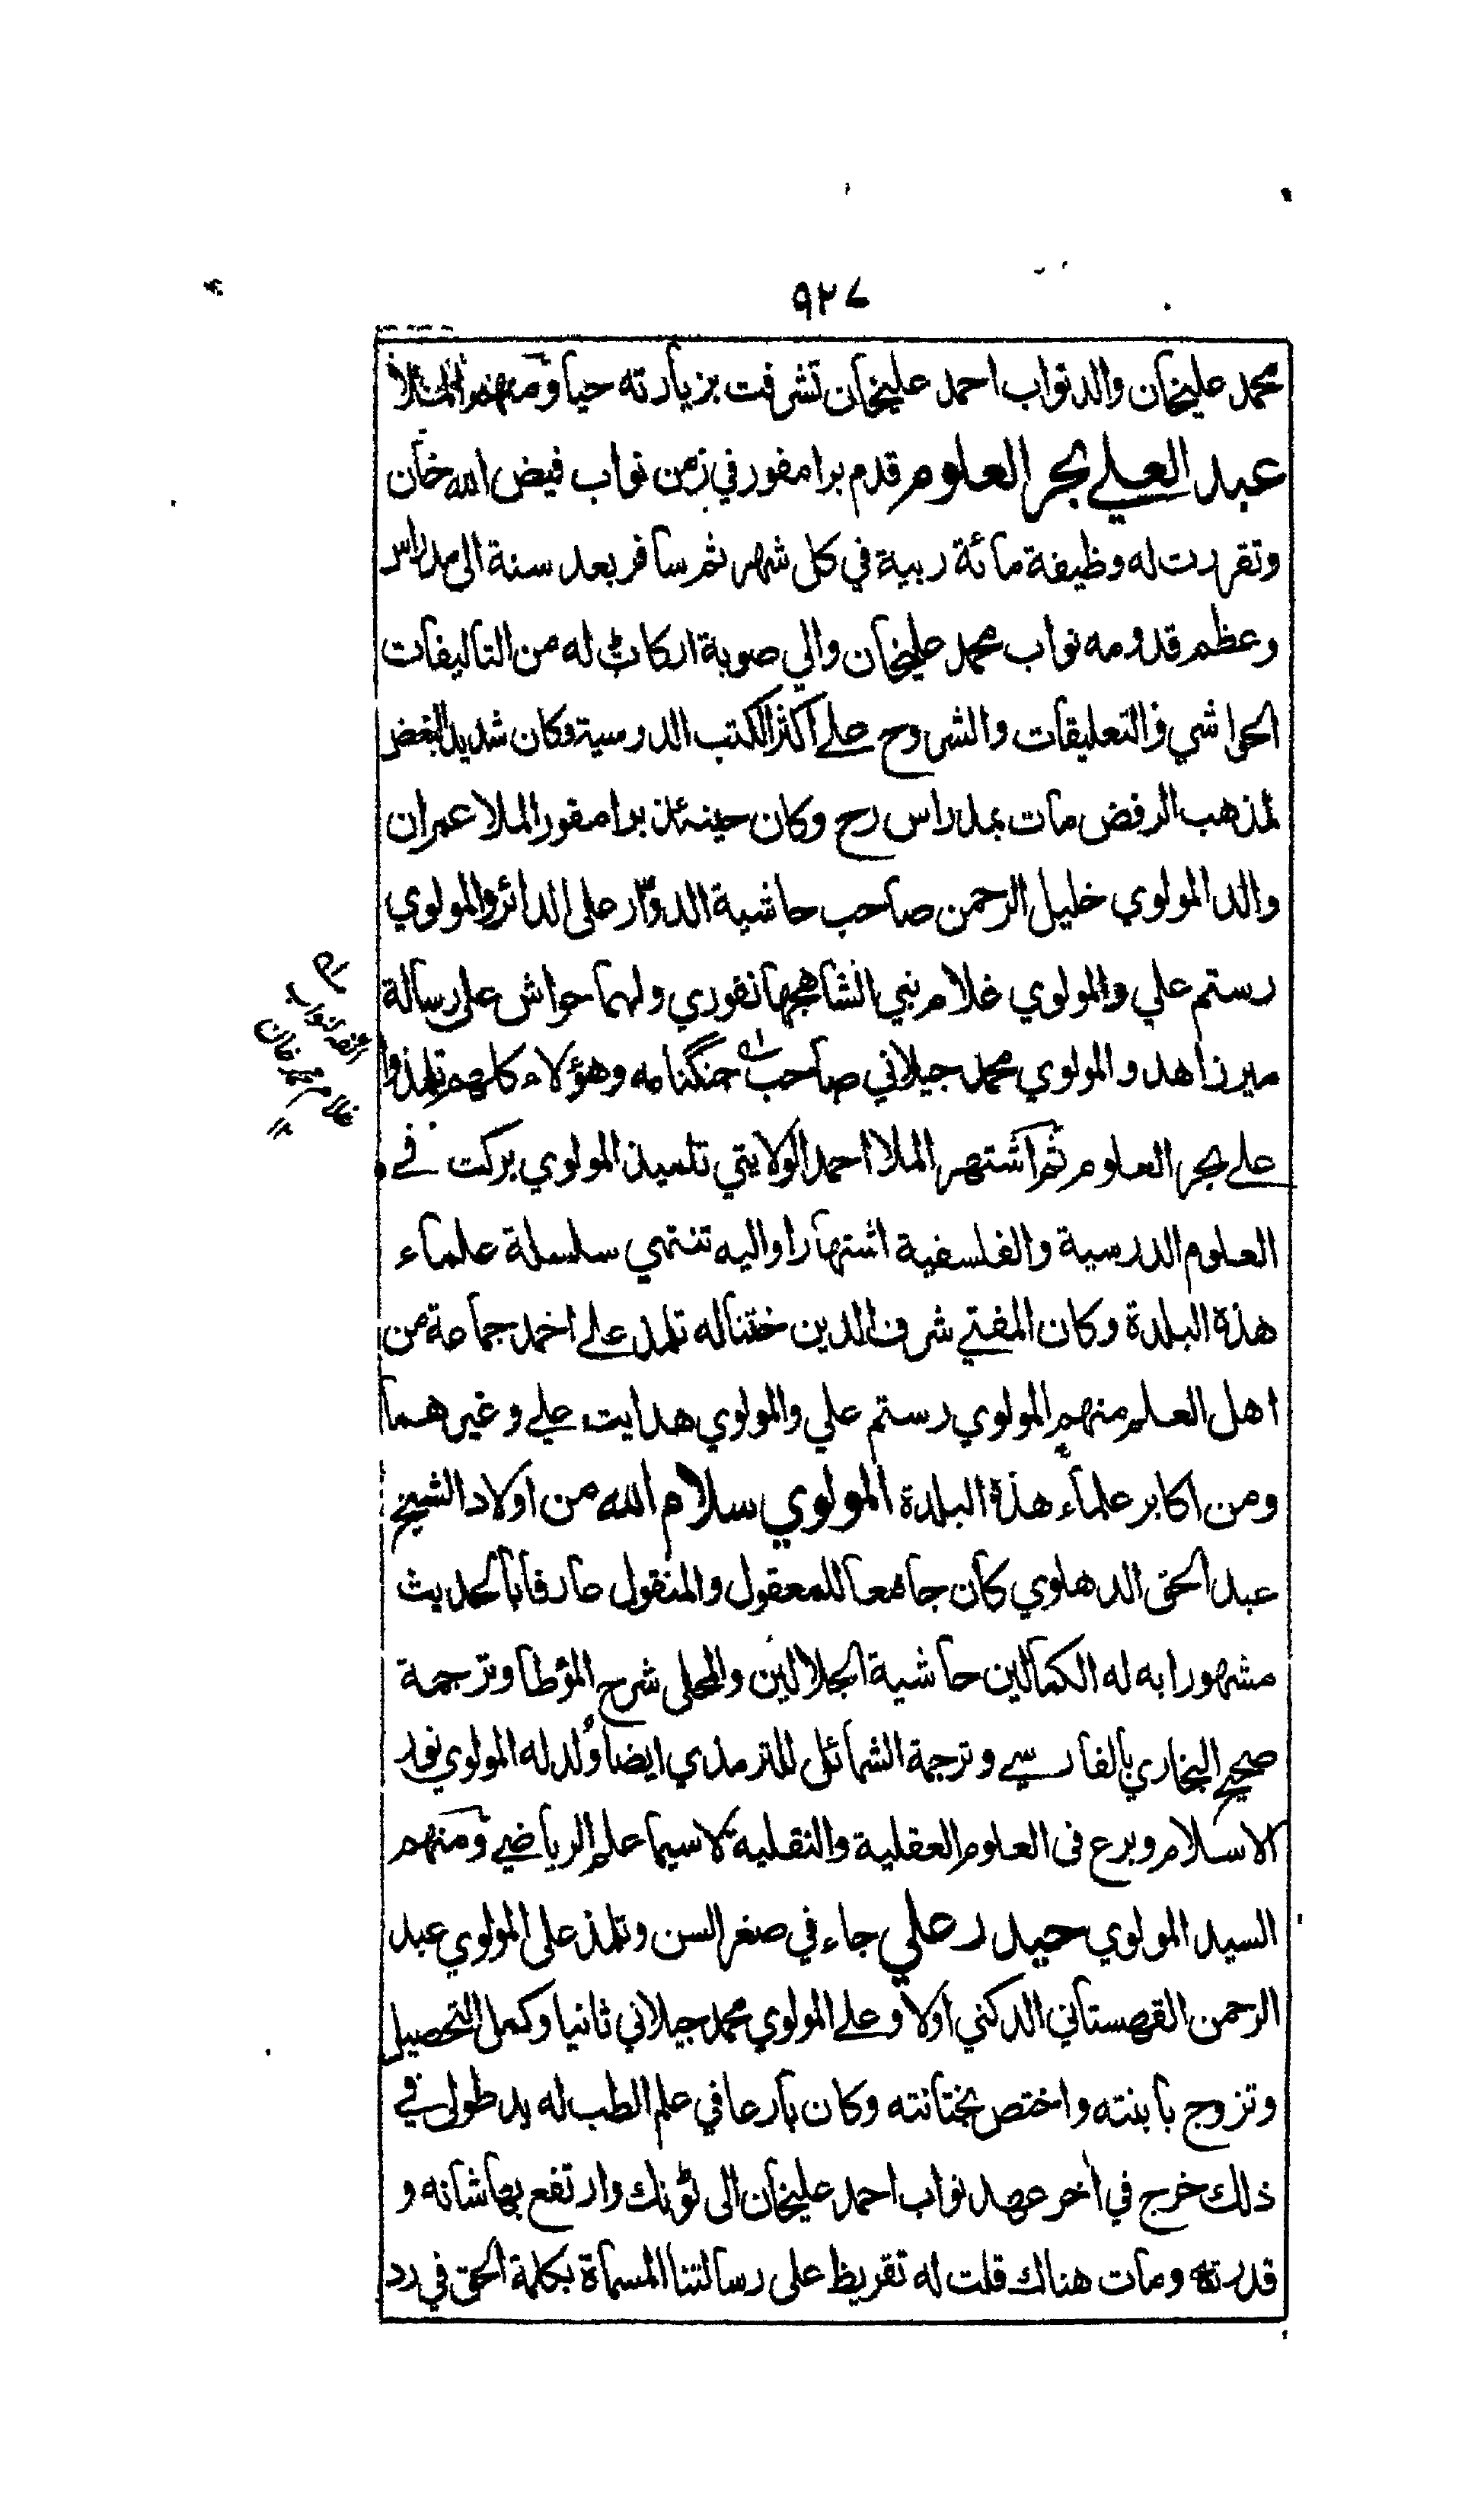 ٩٢٧
محمد عليخان والد نواب احمد عليخان تشرفت بزيارته حيا ومنهم الملا
عبد العلي بحر العلوم قدم برامفور في زمن نواب فيض الله خان
وتقررت له وظيفة مائة ربية في كل شهر ثم سافر بعد سنة الى مدراس
وعظم قدومه نواب محمد عليخان والي صوبة اركاٹ له من التاليفات
الحواشي والتعليقات والشروح على اكثر الكتب الدرسية وكان شديد البغض
لمذهب الرفض مات بمدراس رح وكان حينئذ برامفور الملا عمران
والد المولوي خليل الرحمن صاحب حاشية الدوّار على الدائر والمولوي
رستم علي والمولوي غلام نبي الشاهجهانفوري ولهما حواش على رسالة
ميرزاهد والمولوي محمد جيلاني صاحب جنگنامه وهؤلاء كلهم تلمذوا
على بحر العلوم ثم اشتهر الملا احمد الولايتي تلميذ المولوي بركت في
العلوم الدرسية والفلسفية اشتهارا واليه تنتهي سلسلة علماء
هذه البلدة وكان المفتي شرف الدين ختنا له تلمذ على احمد جماعة من
اهل العلم منهم المولوي رستم علي والمولوي هدايت علي وغيرهما
ومن اكابر علماء هذه البلدة المولوي سلام الله من اولاد الشيخ
عبد الحق الدهلوي كان جامعا للمعقول والمنقول عارفا بالحديث
مشهورا به له الكمالين حاشية الجلالين والمحلى شرح المؤطا وترجمة
صحيح البخاري بالفارسي وترجمة الشمائل للترمذي ايضا وُلد له المولوي نور
الاسلام وبرع فى العلوم العقلية والنقلية لا سيما علم الرياضي ومنهم
السيد المولوي حيدر علي جاء في صغر السن وتلمذ على المولوي عبد
الرحمن القهستاني الدكني اولا وعلى المولوي محمد جيلاني ثانيا وكمل التحصيل
وتزوج بابنته واختص بختانته وكان بارعا في علم الطب له يد طولى في
ذلك خرج في اخر عهد نواب احمد عليخان الى ٹونك وارتفع بها شانه و
قدرته ومات هناك قلت له تقريظ على رسالتنا المسماة بكلمة الحق في رد